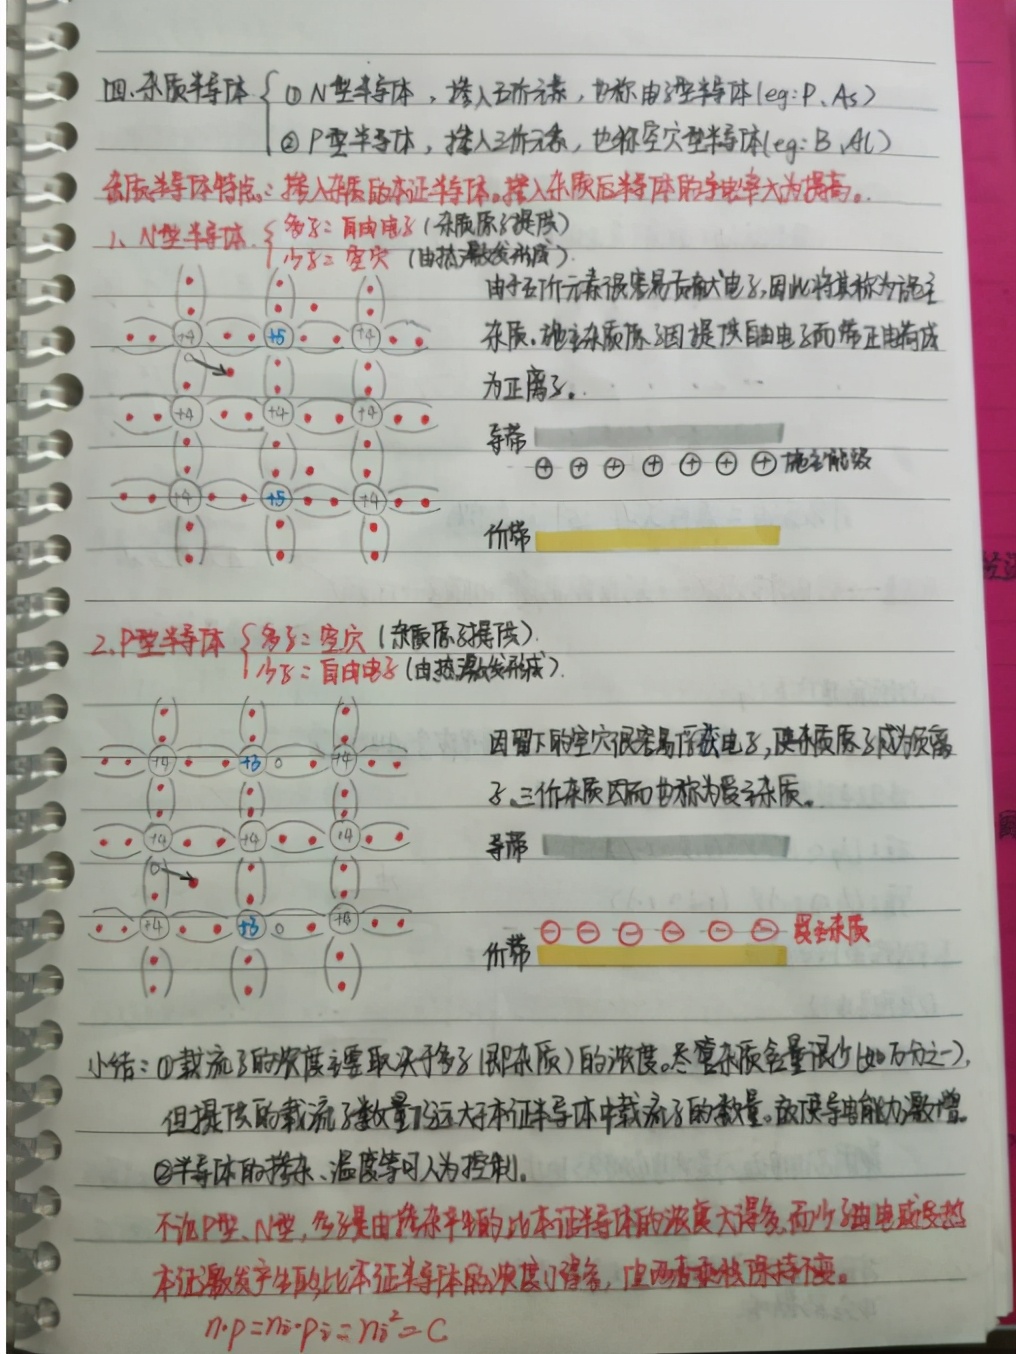 四.杂质半导体 ①N型半导体，掺入五价元素，也称电子型半导体(eg:P、As)
②P型半导体，掺入三价元素，也称空穴型半导体(eg:B、Al)
杂质半导体特点：掺入杂质的本证半导体。掺入杂质后半导体的导电率大为提高。
1、N型半导体. 多子=自由电子(杂质原子提供)
少子=空穴 (由热激发形成).
由于五价元素很容易贡献电子,因此将其称为施主
杂质。施主杂质原子因提供自由电子而带正电荷成
为正离子。
+4 +5 +4
+4 +4 +4
+4 +5 +4
导带
施主能级
价带
2.P型半导体 多子=空穴 (杂质原子提供).
少子=自由电子(由热激发形成).
因留下的空穴很容易俘获电子,使杂质原子成为负离
子.三价杂质因而也称为受主杂质。
+4 +3 +4
+4 +4 +4
+4 +3 +4
导带
受主杂质
价带
小结：①载流子的浓度主要取决于多子(即杂质)的浓度。尽管杂质含量很少(如万分之一),
但提供的载流子数量仍远大于本证半导体中载流子的数量。故使导电能力激增。
②半导体的掺杂、温度等可人为控制。
不论P型、N型,多子是由掺杂产生的,比本证半导体的浓度大得多,而少子由电或受热
本证激发产生的,比本证半导体的浓度小得多，但两者乘积保持不变。
n·p=ni·pi=ni²=C